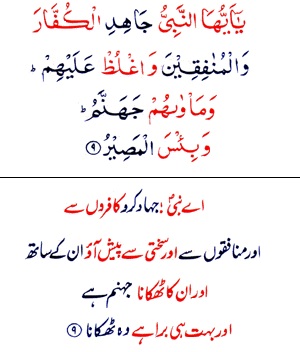 يٰۤاَيُّهَا النَّبِىُّ جَاهِدِ الْكُفَّارَ
وَالْمُنٰفِقِيْنَ وَاغْلُظْ عَلَيْهِمْ ؕ
وَمَاْوٰىهُمْ جَهَنَّمُ ؕ
وَبِئْسَ الْمَصِيْرُ ۹
اے نبیؐ ! جہاد کرو کافروں سے
اور منافقوں سے اور سختی سے پیش آؤ ان کے ساتھ
اور ان کا ٹھکانا جہنم ہے
اور بہت ہی برا ہے وہ ٹھکانا ۹